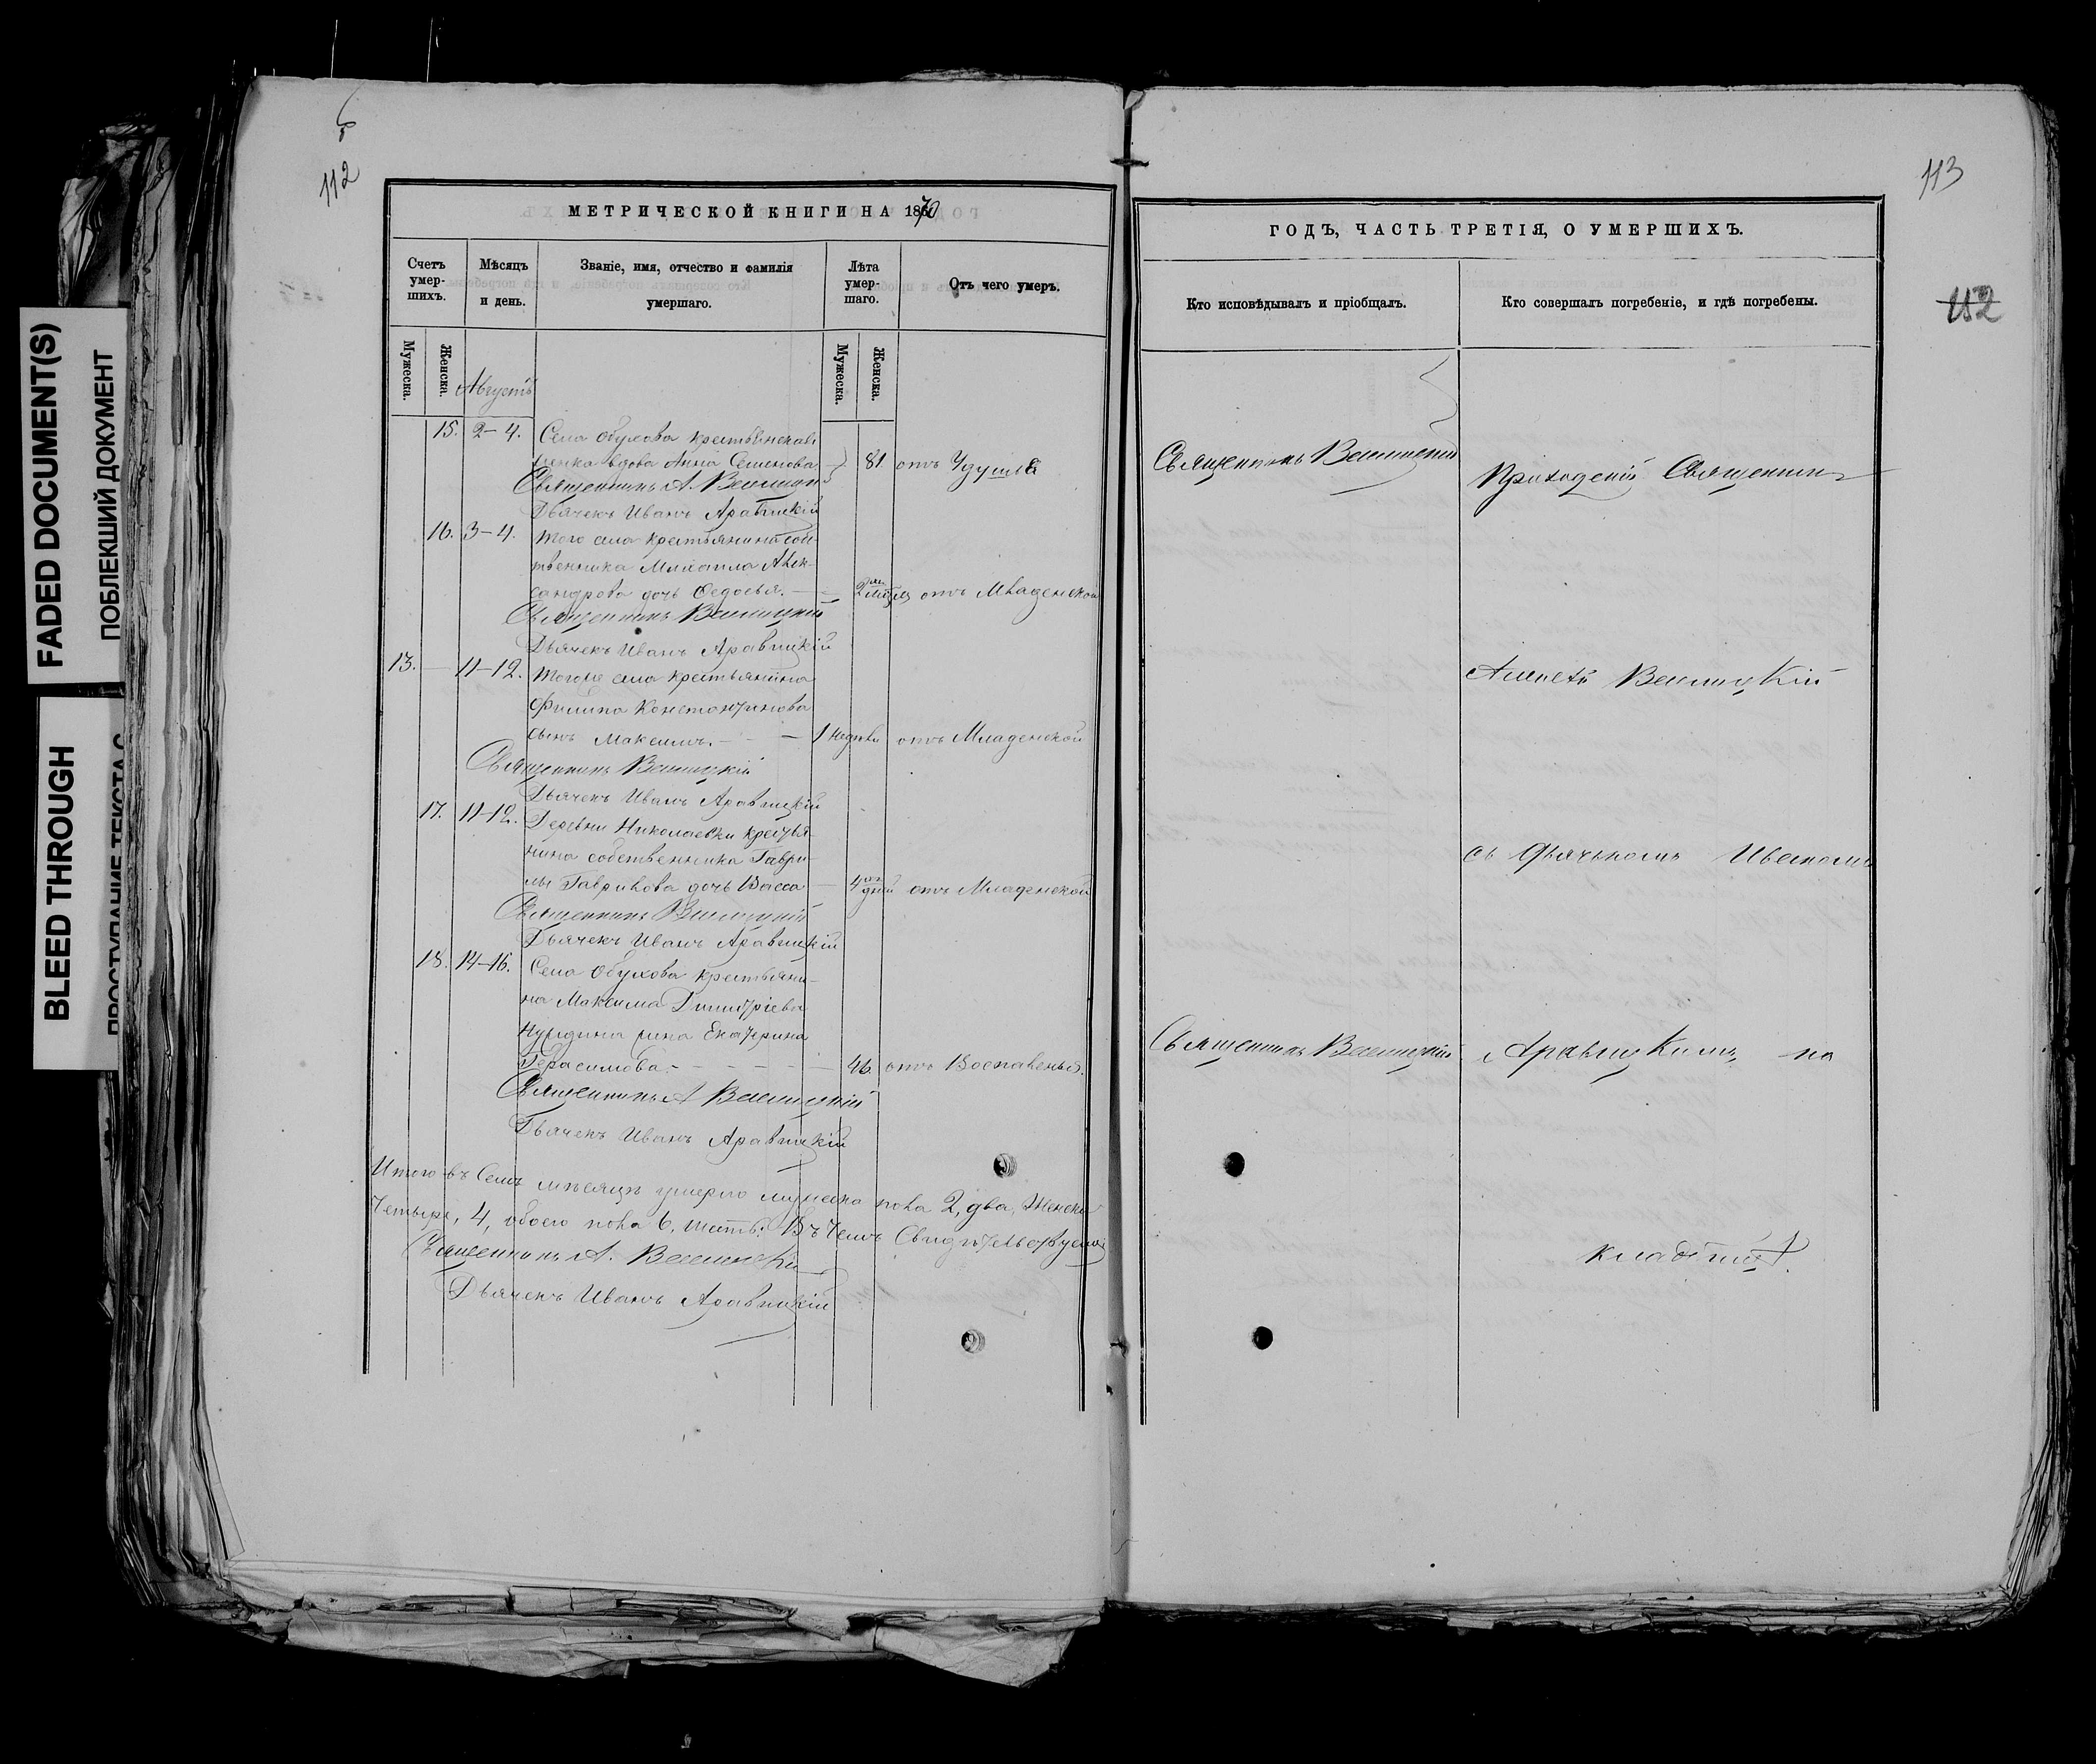 FADED DOCUMENT(S)
ПОБЛЕКШИЙ ДОКУМЕНТ
BLEED THROUGH
ПРОСТУПАНИЕ ТЕКСТА С
112
МЕТРИЧЕСКОЙ КНИГИ НА 1870
Счетъ умер-шихъ.
Мѣсяцъ и день.
Званіе, имя, отчество и фамилія умершаго.
Лѣта умер-шаго.
Отъ чего умеръ.
Мужеска.
Женска.
Августъ
Мужеска.
Женска.
15. 2-4. Села Обухова крестьянская
вдова Анна Семенова 81 отъ Удушья
Священникъ А.
Дьячекъ Иванъ Аравицкій
16. 3-4. того села крестьянина соб-
твенника Михаила Алек-
сандрова дочь Федосья. 2 отъ Младенской
Священникъ
Дьячекъ Иванъ Аравицкій
13. 11-12. Тогоже села крестьянина
Филипа Константинова
сынъ Максимъ. 1 недѣли отъ Младенской
Священникъ
Дьячекъ Иванъ Аравицкій
17. 11-12. Деревни Николаевки крестья-
нина собственника Гаври-
лы Гаврилова дочь Васса 4 дней отъ Младенской
Священникъ
Дьячекъ Иванъ Аравицкій
18. 14-16. Села Обухова крестьяни-
на Максима Димитріева
жена Екатерина
Герасимова. 46. отъ Воспаленья.
Священникъ А
Дьячекъ Иванъ Аравицкій
Итого въ Семъ мѣсяцѣ умерло мужеска пола 2, два, Женска
Четыре, 4, обоего пола 6, шесть. Въ Чемъ Свидѣтельствуемъ
Священникъ А.
Дьячекъ Иванъ Аравицкій
113
ГОДЪ, ЧАСТЬ ТРЕТІЯ, О УМЕРШИХЪ.
152
Кто исповѣдывалъ и пріобщалъ.
Кто совершалъ погребеніе, и гдѣ погребены.
Священникъ
Приходскій Священникъ
Алексѣй
съ Дьячькомъ Иваномъ
Священникъ
Аравицкимъ на
кладбищѣ.